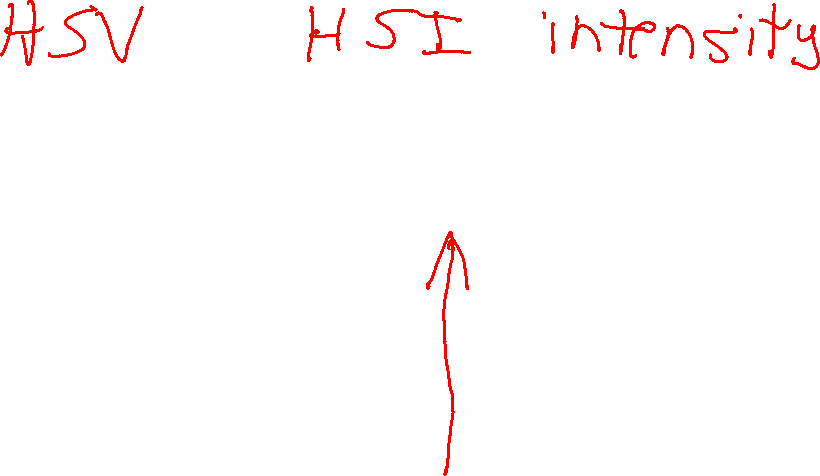 HSV HSI intensity